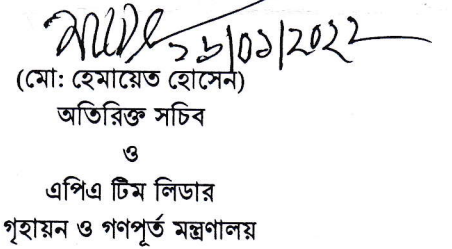 ২৬/০১/২০২২
(মো: হেমায়েত হোসেন)
অতিরিক্ত সচিব
ও
এপিএ টিম লিডার
গৃহায়ন ও গণপূর্ত মন্ত্রণালয়